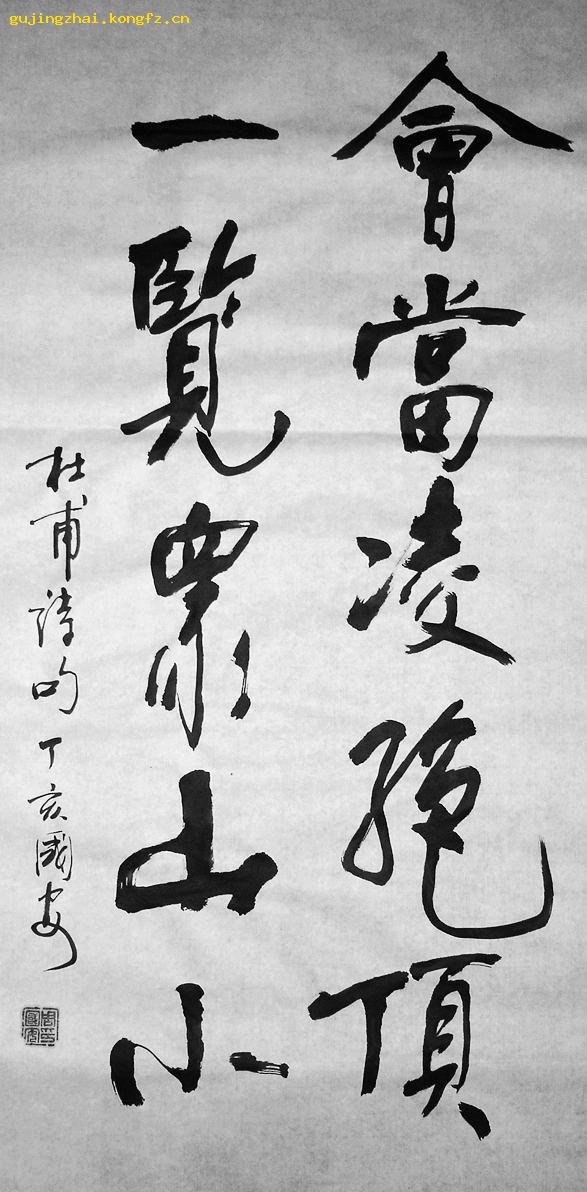 gujingzhai.kongfz.cn
會當凌絕頂
一覽眾山小
杜甫詩句丁亥國安